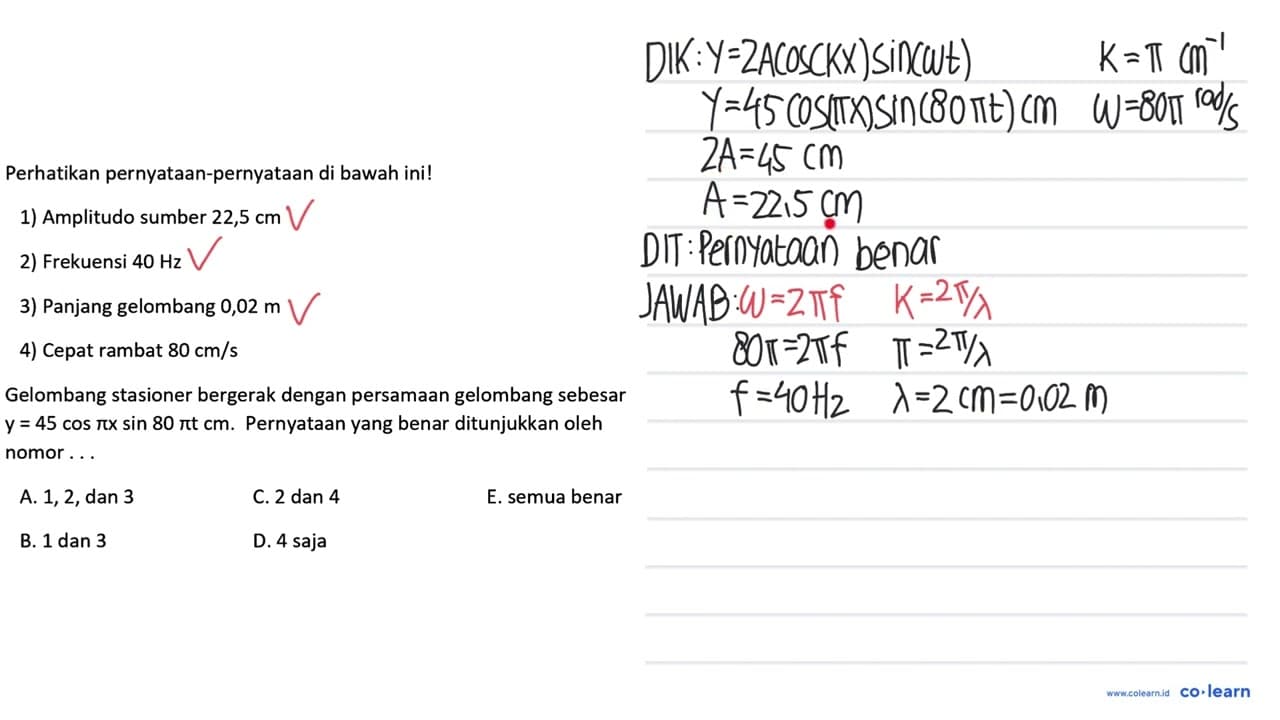 Perhatikan pernyataan-pernyataan di bawah ini!
1) Amplitudo sumber 22,5 cm
2) Frekuensi 40 Hz
3) Panjang gelombang 0,02 m
4) Cepat rambat 80 cm/s
Gelombang stasioner bergerak dengan persamaan gelombang sebesar
y = 45 cos πx sin 80 πt cm. Pernyataan yang benar ditunjukkan oleh
nomor . . .
A. 1, 2, dan 3 C. 2 dan 4 E. semua benar
B. 1 dan 3 D. 4 saja
DIK: Y=2Acos(KX)sin(ωt) K=π cm⁻¹
Y=45 cos(πX)sin(80πt) cm ω=80π rad/s
2A=45 cm
A=22,5 cm
DIT: Pernyataan benar
JAWAB: ω=2πf K=2π/λ
80π=2πf π=2π/λ
f=40Hz λ=2 cm=0,02 m
www.colearn.id co·learn